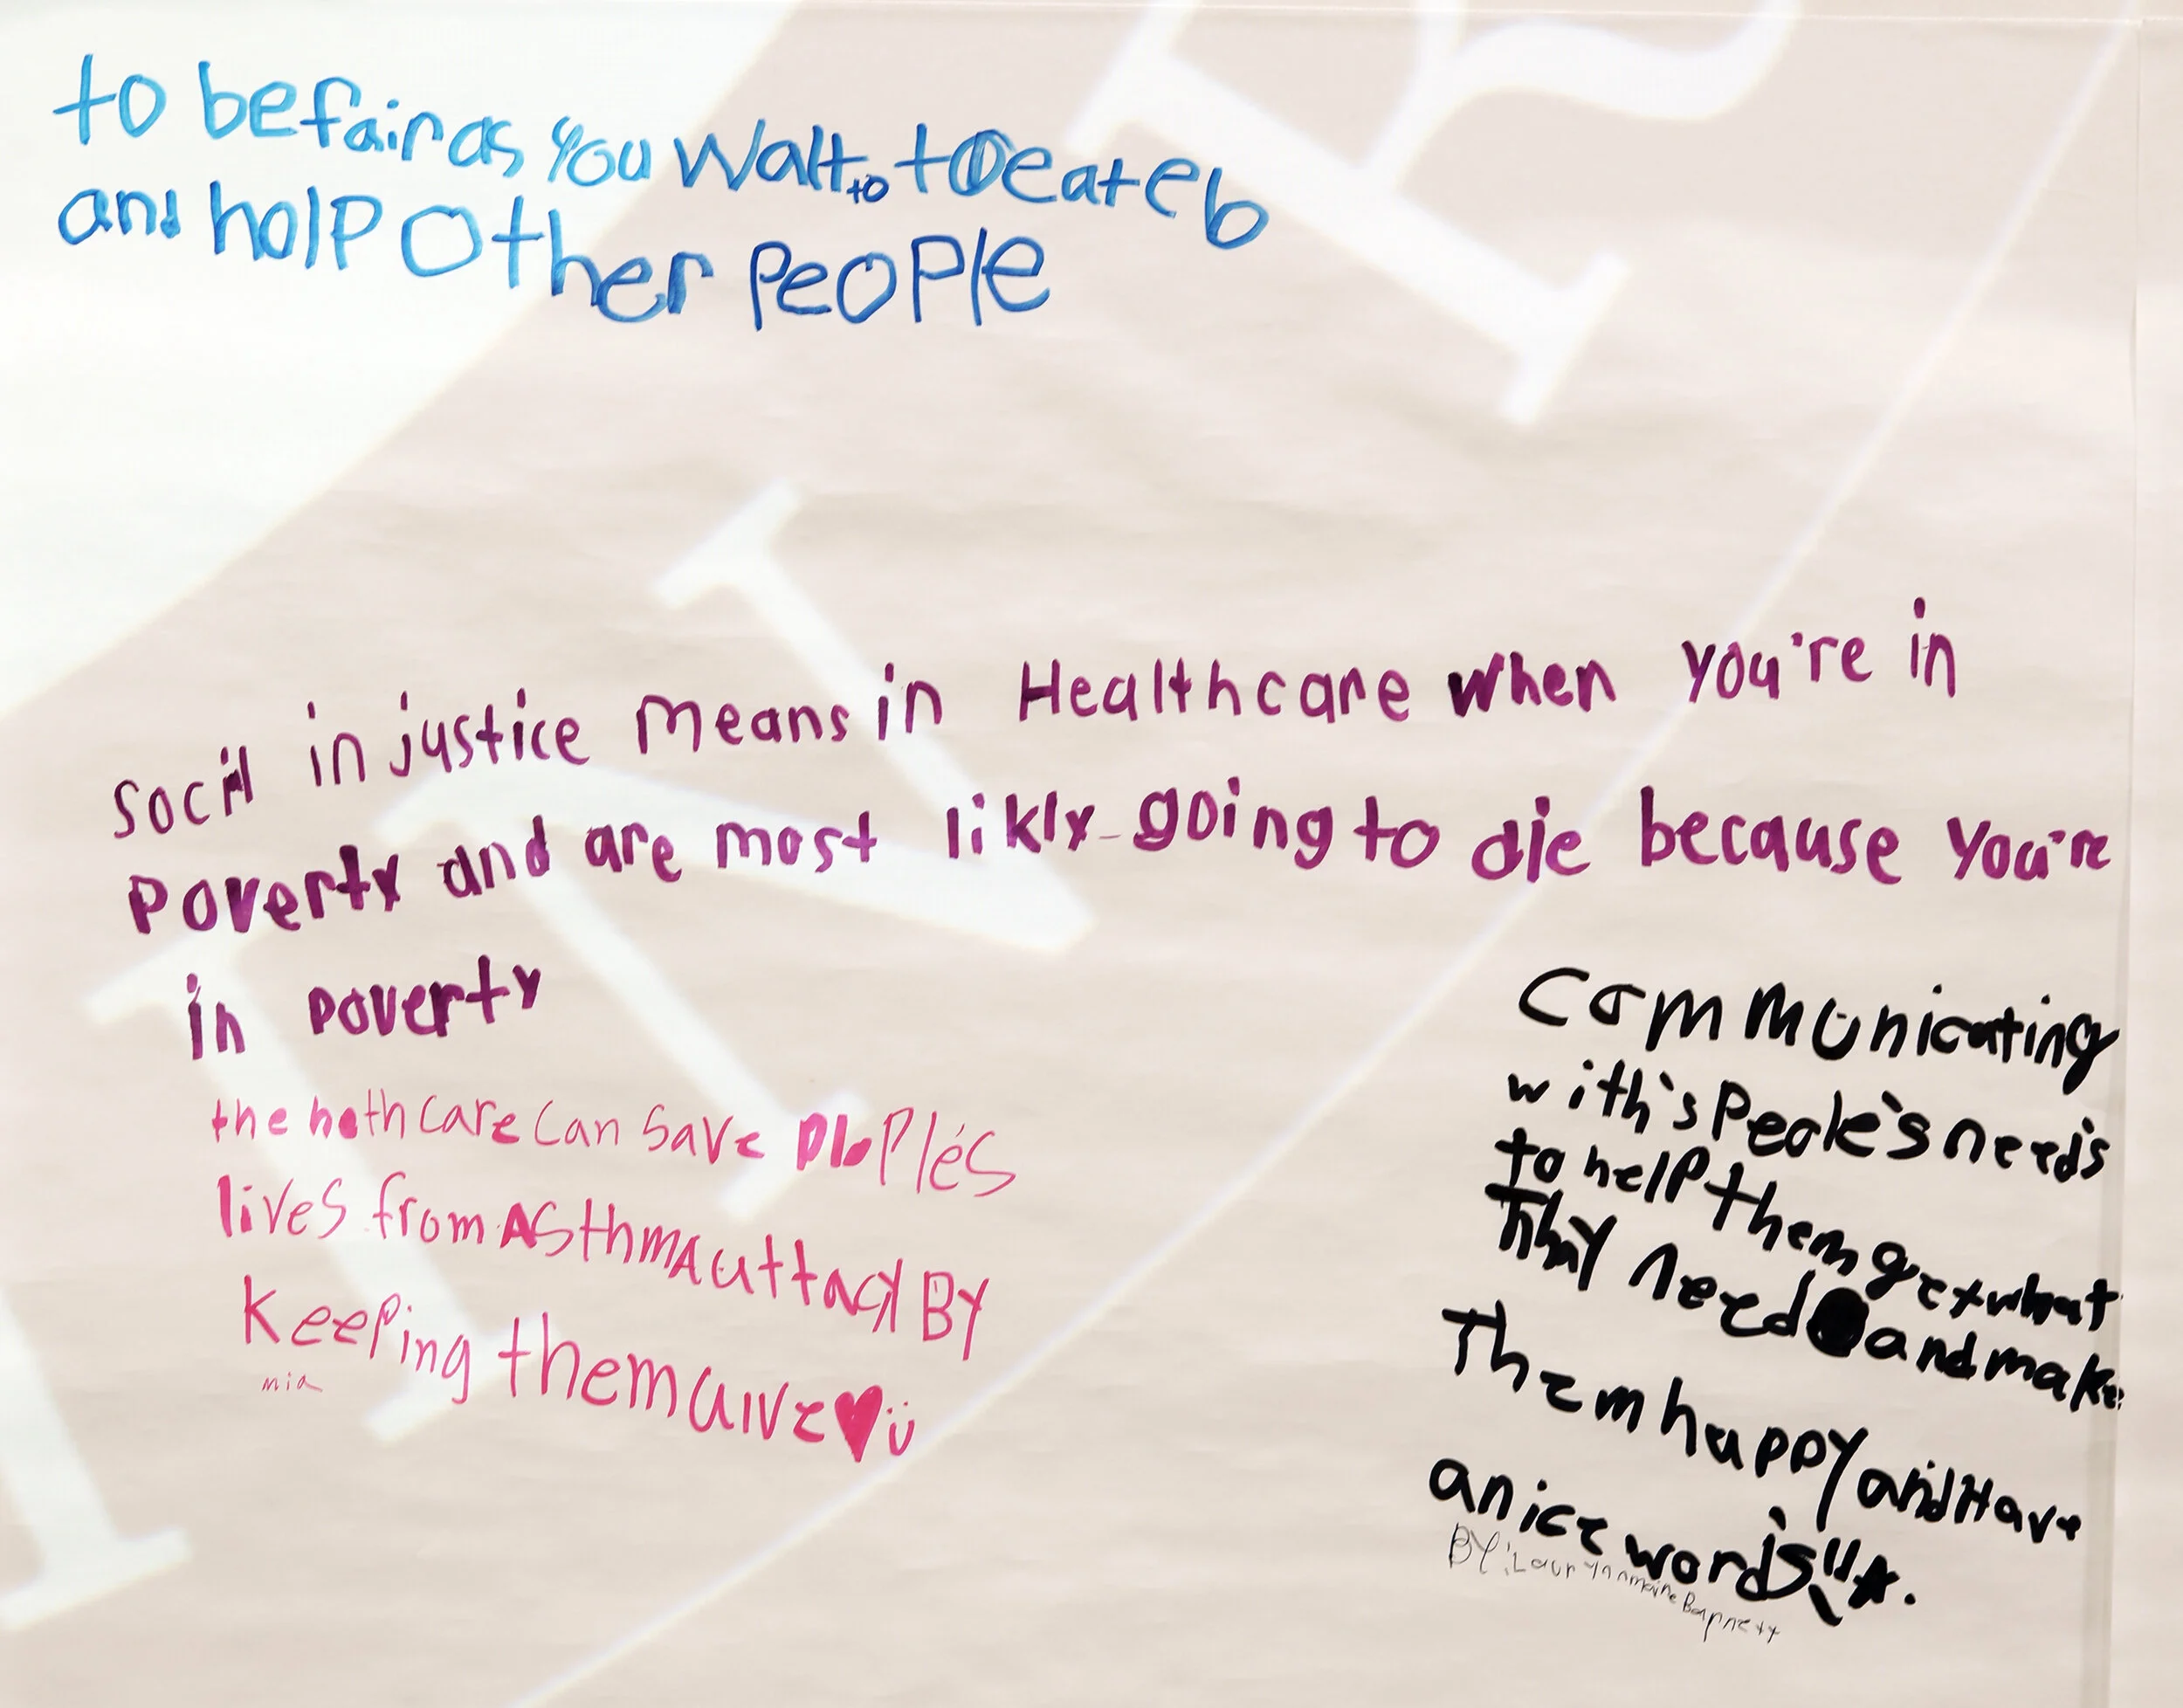 to be fair as you Walt to toeateb
and holp Other People
Socil injustice means in Healthcare when you're in
Poverty and are most likly going to die because you're
in poverty
the hethcare can save ploples
lives from Asthma attack By
keeping them aive ♥ ü
mia
Communicating
with's Peole's needs
to help them get what
They need and make
Them happy and Have
a nice words
BY: